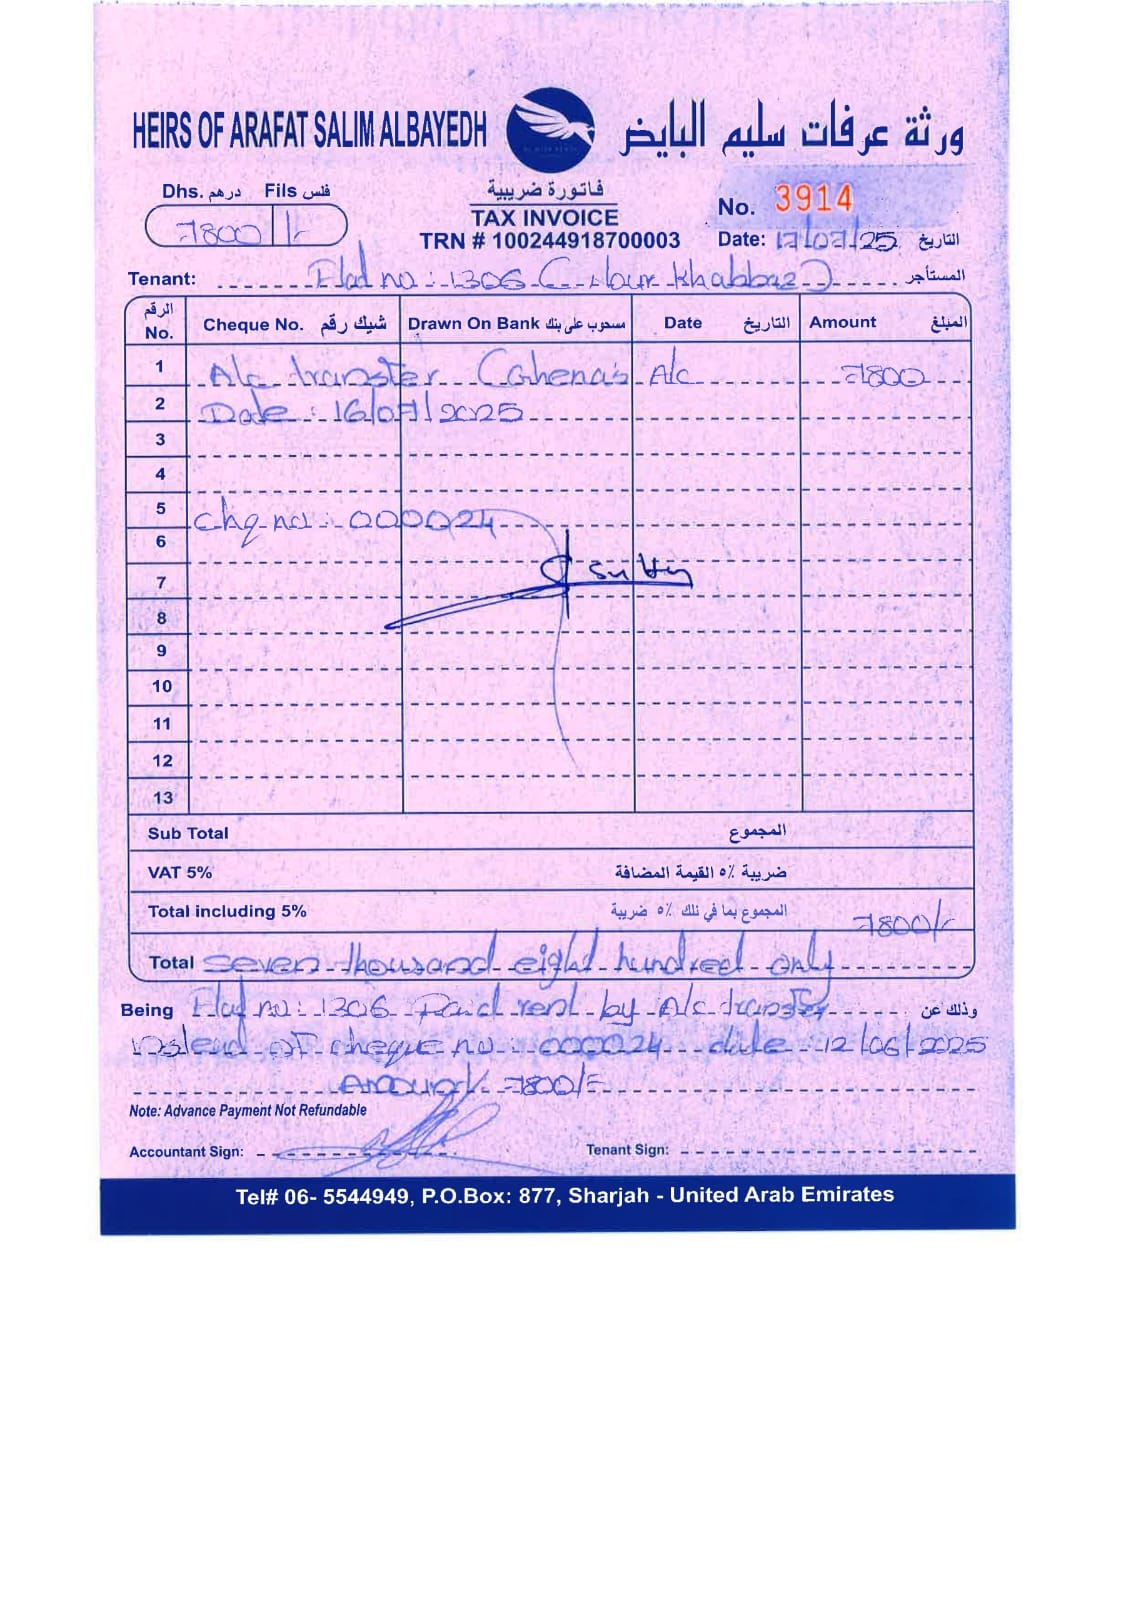 HEIRS OF ARAFAT SALIM ALBAYEDH ورثة عرفات سليم البايض
Dhs. درهم Fils فلس
7800 /-
فاتورة ضريبية
TAX INVOICE
TRN # 100244918700003
No. 3914
Date: 17/07/25 التاريخ
Tenant: Flad no : 1306 ( Khabbaz ) المستأجر
الرقم No. Cheque No. شيك رقم Drawn On Bank مسحوب على بنك Date التاريخ Amount المبلغ
1 A/c transfer (Ghena's A/c 7800
2 Date : 16/07/2025
3
4
5 Chq no : 000024
6
7
8
9
10
11
12
13
Sub Total المجموع
VAT 5% ضريبة ٥٪ القيمة المضافة
Total including 5% المجموع بما في ذلك ٥٪ ضريبة 7800/-
Total seven thousand eight hundred only
Being Flad no : 1306 Paid rent by A/c transfer وذلك عن
instead of cheque no : 000024 date : 12/06/2025
Amount 7800/-
Note: Advance Payment Not Refundable
Accountant Sign: Tenant Sign:
Tel# 06- 5544949, P.O.Box: 877, Sharjah - United Arab Emirates